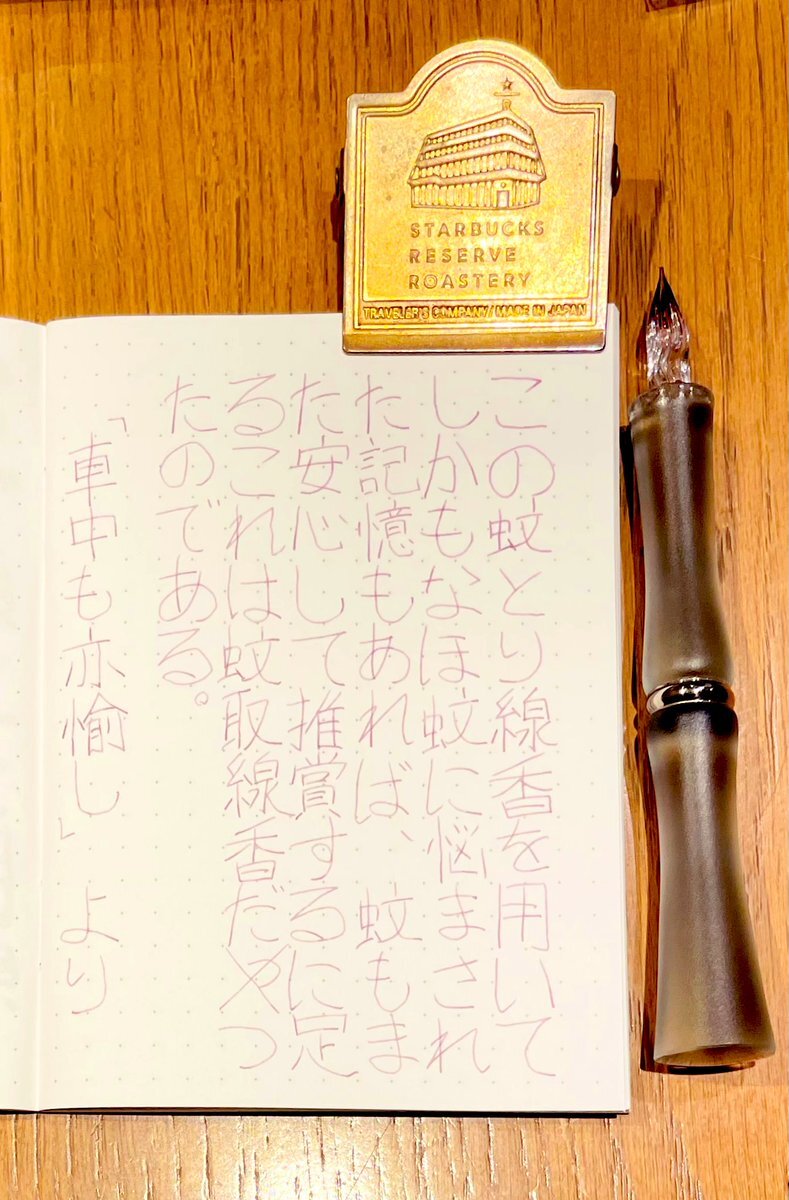 STARBUCKS
RESERVE
ROASTERY
TRAVELER'S COMPANY / MADE IN JAPAN
この蚊とり線香を用いて
しかもなほ蚊に悩まされ
た記憶もあれば、蚊もま
た安心して推賞するに定
るこれは蚊取線香だやつ
たのである。
「車中も亦愉し」より